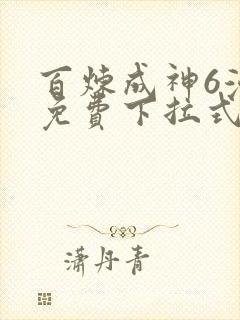 百炼成神6
免費下拉式
潇丹青